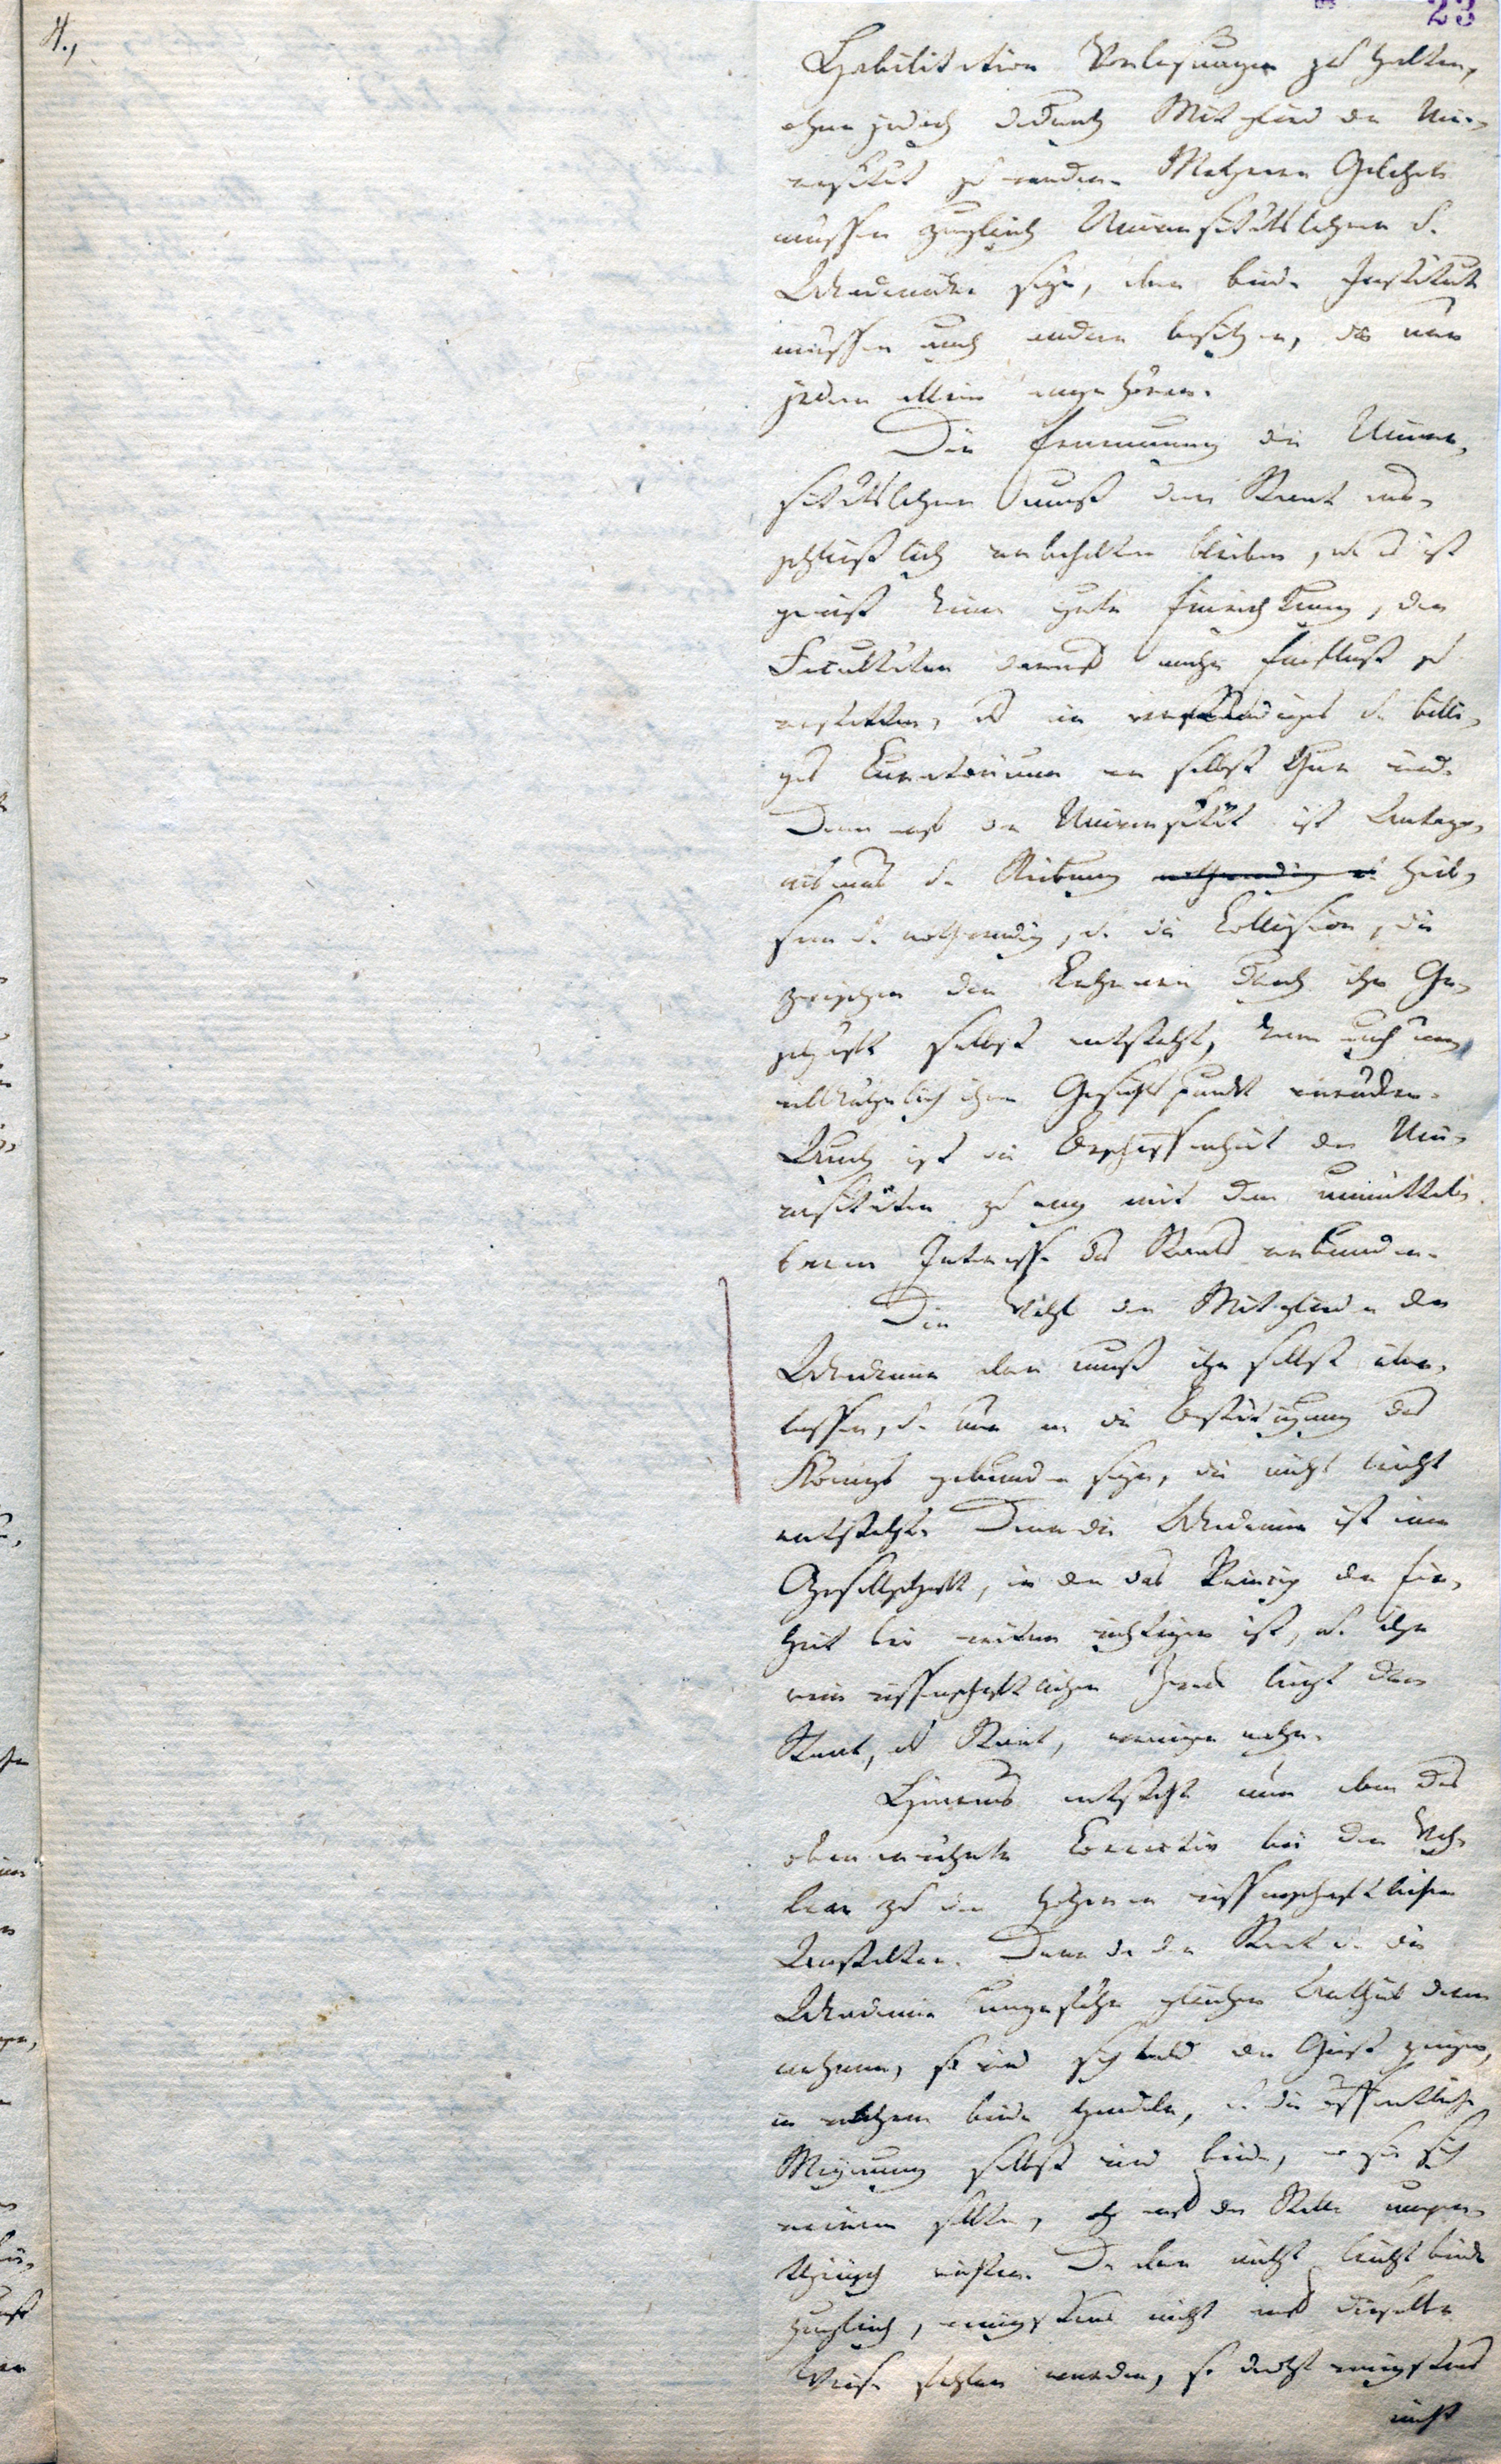 23
4.,
Habilitation Vorlesungen zu halten,
ohne jedoch dadurch Mitglied der Uni-
versität zu werden. Mehrere Gelehrte
müssen zugleich Universitätslehrer u.
Akademiker seyn, aber beide Institute
müssen auch andere besitzen, die nur
jedem allein angehören.
Die Ernennung der Univer-
sitätslehrer muß dem Staat aus-
schließlich vorbehalten bleiben, u. es ist
gewiß keine gute Einrichtung, den
Facultäten darauf mehr Einfluß zu
verstatten, als ein verständiges u. billi-
ges Curatorium von selbst thun wird.
Denn auf der Universität ist Antago-
nismus u. Reibung nothwendig u. heil-
sam u. nothwendig, u. die Collision, die
zwischen den Lehrern durch ihr Ge-
schäft selbst entsteht, kann auch un-
willkührlich ihren Gesichtspunkt verrücken.
Auch ist die Beschaffenheit der Uni-
versitäten zu eng mit dem unmittel-
baren Interesse des Staats verbunden.
Die Wahl der Mitglieder der
Akademie aber muß ihr selbst über-
lassen, u. nur an die Bestätigung des
Königs gebunden seyn, die nicht leicht
entsteht. Denn die Akademie ist eine
Gesellschaft, in der das Princip der Ein-
heit bei weitem wichtiger ist, u. ihr
rein wissenschaftlicher Zweck liegt dem
Staat, als Staat, weniger nahe.
Hieraus entsteht nun aber das
oben erwähnte Correctiv bei den Wah-
len zu den höheren wissenschaftlichen
Anstalten. Denn da der Staat u. die
Akademie ungefähr gleichen Antheil daran
nehmen, so wird sich bald der Geist zeigen,
in welchem beide handeln, u. die öffentliche
Meynung selbst wird beide, wo sie sich
verirren sollten, auf der Stelle unpar-
theiisch richten. Da aber nicht leicht beide
zugleich, wenigstens nicht auf dieselbe
Weise fehlen werden, so droht wenigstens
nicht